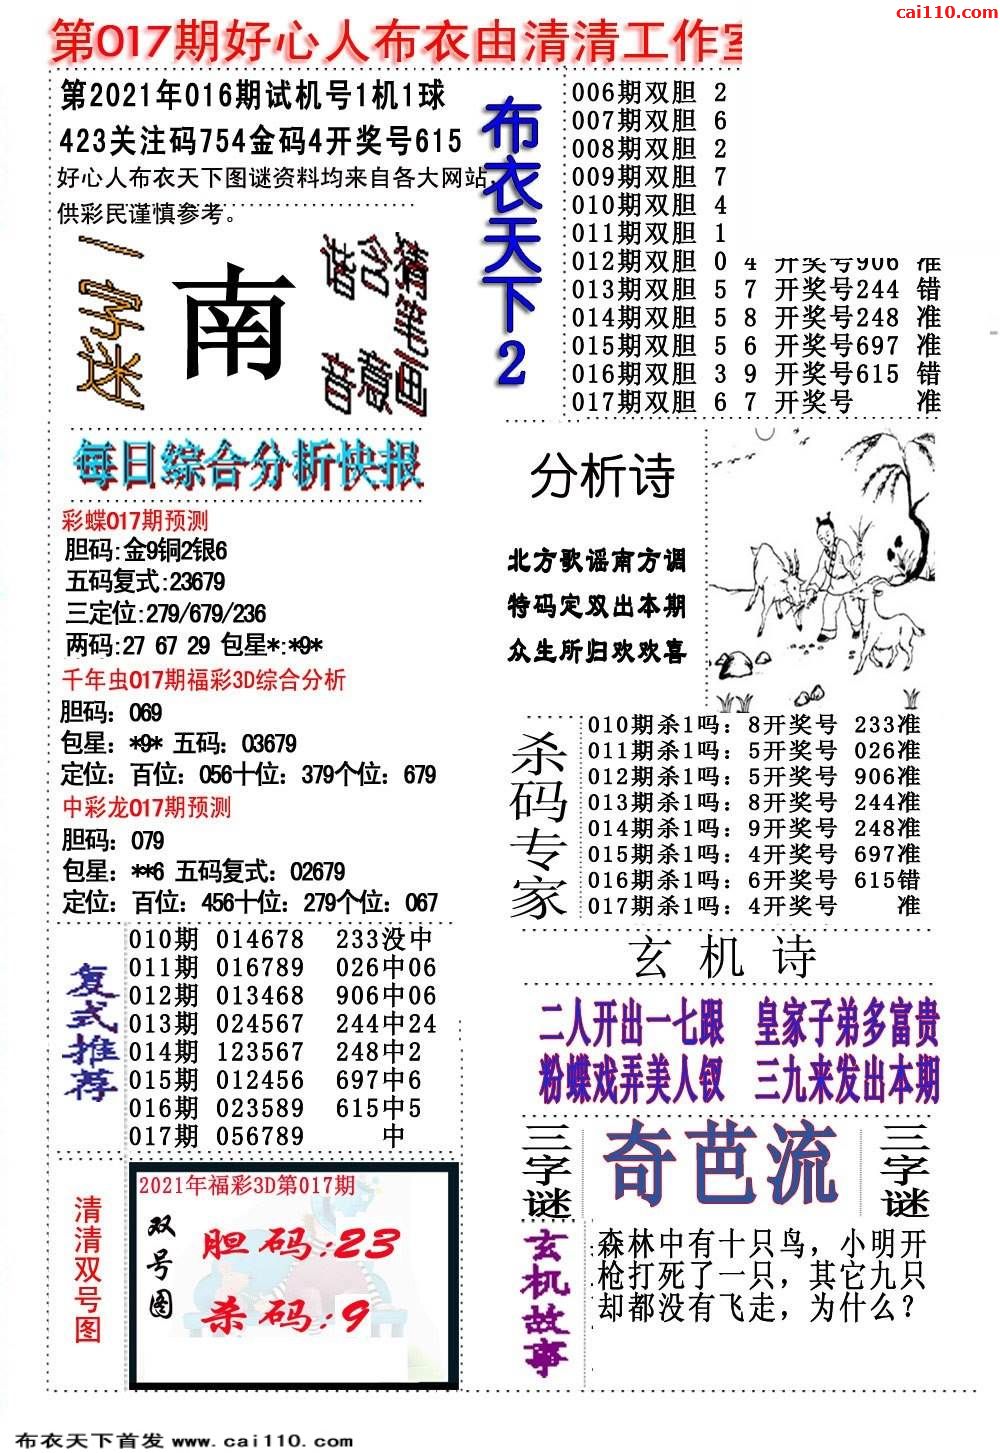 cai110.com
第017期好心人布衣由清清工作室
第2021年016期试机号1机1球
423关注码754金码4开奖号615
好心人布衣天下图谜资料均来自各大网站,
供彩民谨慎参考。
一字迷
南
猜笔画
含意
谐音
布衣天下2
006期双胆 2
007期双胆 6
008期双胆 2
009期双胆 7
010期双胆 4
011期双胆 1
012期双胆 0 4 开奖号906 准
013期双胆 5 7 开奖号244 错
014期双胆 5 8 开奖号248 准
015期双胆 5 6 开奖号697 准
016期双胆 3 9 开奖号615 错
017期双胆 6 7 开奖号 准
每日综合分析快报
彩蝶017期预测
胆码:金9铜2银6
五码复式:23679
三定位:279/679/236
两码:27 67 29 包星*:*9*
千年虫017期福彩3D综合分析
胆码：069
包星：*9* 五码：03679
定位：百位：056十位：379个位：679
中彩龙017期预测
胆码：079
包星：**6 五码复式：02679
定位：百位：456十位：279个位：067
分析诗
北方歌谣南方调
特码定双出本期
众生所归欢欢喜
杀码专家
010期杀1吗：8开奖号 233准
011期杀1吗：5开奖号 026准
012期杀1吗：5开奖号 906准
013期杀1吗：8开奖号 244准
014期杀1吗：9开奖号 248准
015期杀1吗：4开奖号 697准
016期杀1吗：6开奖号 615错
017期杀1吗：4开奖号 准
复式推荐
010期 014678 233没中
011期 016789 026中06
012期 013468 906中06
013期 024567 244中24
014期 123567 248中2
015期 012456 697中6
016期 023589 615中5
017期 056789 中
玄机诗
二人开出一七跟 皇家子弟多富贵
粉蝶戏弄美人钗 三九来发出本期
三字谜
奇芭流
三字谜
清清双号图
2021年福彩3D第017期
双号图
胆码:23
杀码:9
玄机故事
森林中有十只鸟，小明开
枪打死了一只，其它九只
却都没有飞走，为什么？
布衣天下首发 www.cai110.com